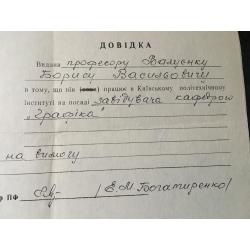 ДОВІДКА
Видана професору Валуєнку
Борису Васильовичу
в тому, що він працює в Київському політехнічному
інституті на посаді завідувача кафедрою
„Графіка"
на вимогу
р ПФ /Є.М Богатиренко/